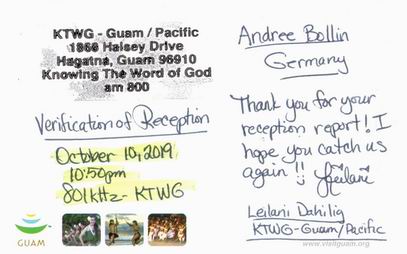 KTWG - Guam / Pacific
1868 Halsey Drive
Hagatna, Guam 96910
Knowing The Word of God
am 800
Verification of Reception
October 10, 2019
10:50pm
801kHz - KTWG
GUAM
Andree Bollin
Germany
Thank you for your
reception report! I
hope you catch us
again!! Leilani
Leilani Dahilig
KTWG-Guam/Pacific
www.visitguam.org